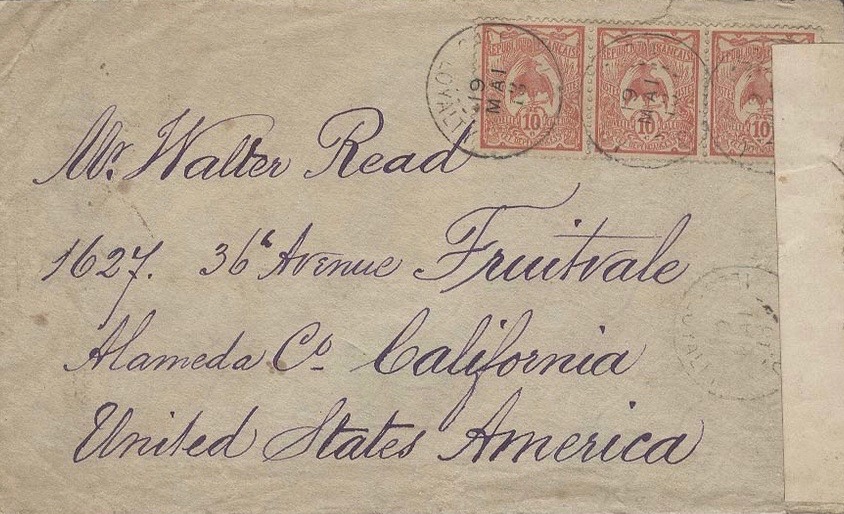 REPUBLIQUE FRANÇAISE REPUBLIQUE FRANÇAISE REPUBLIQUE FRANÇAISE
19 MAI 19 MAI
10 10 10
Mr. Walter Read
1627. 36h Avenue Fruitvale
Alameda Co California
United States America